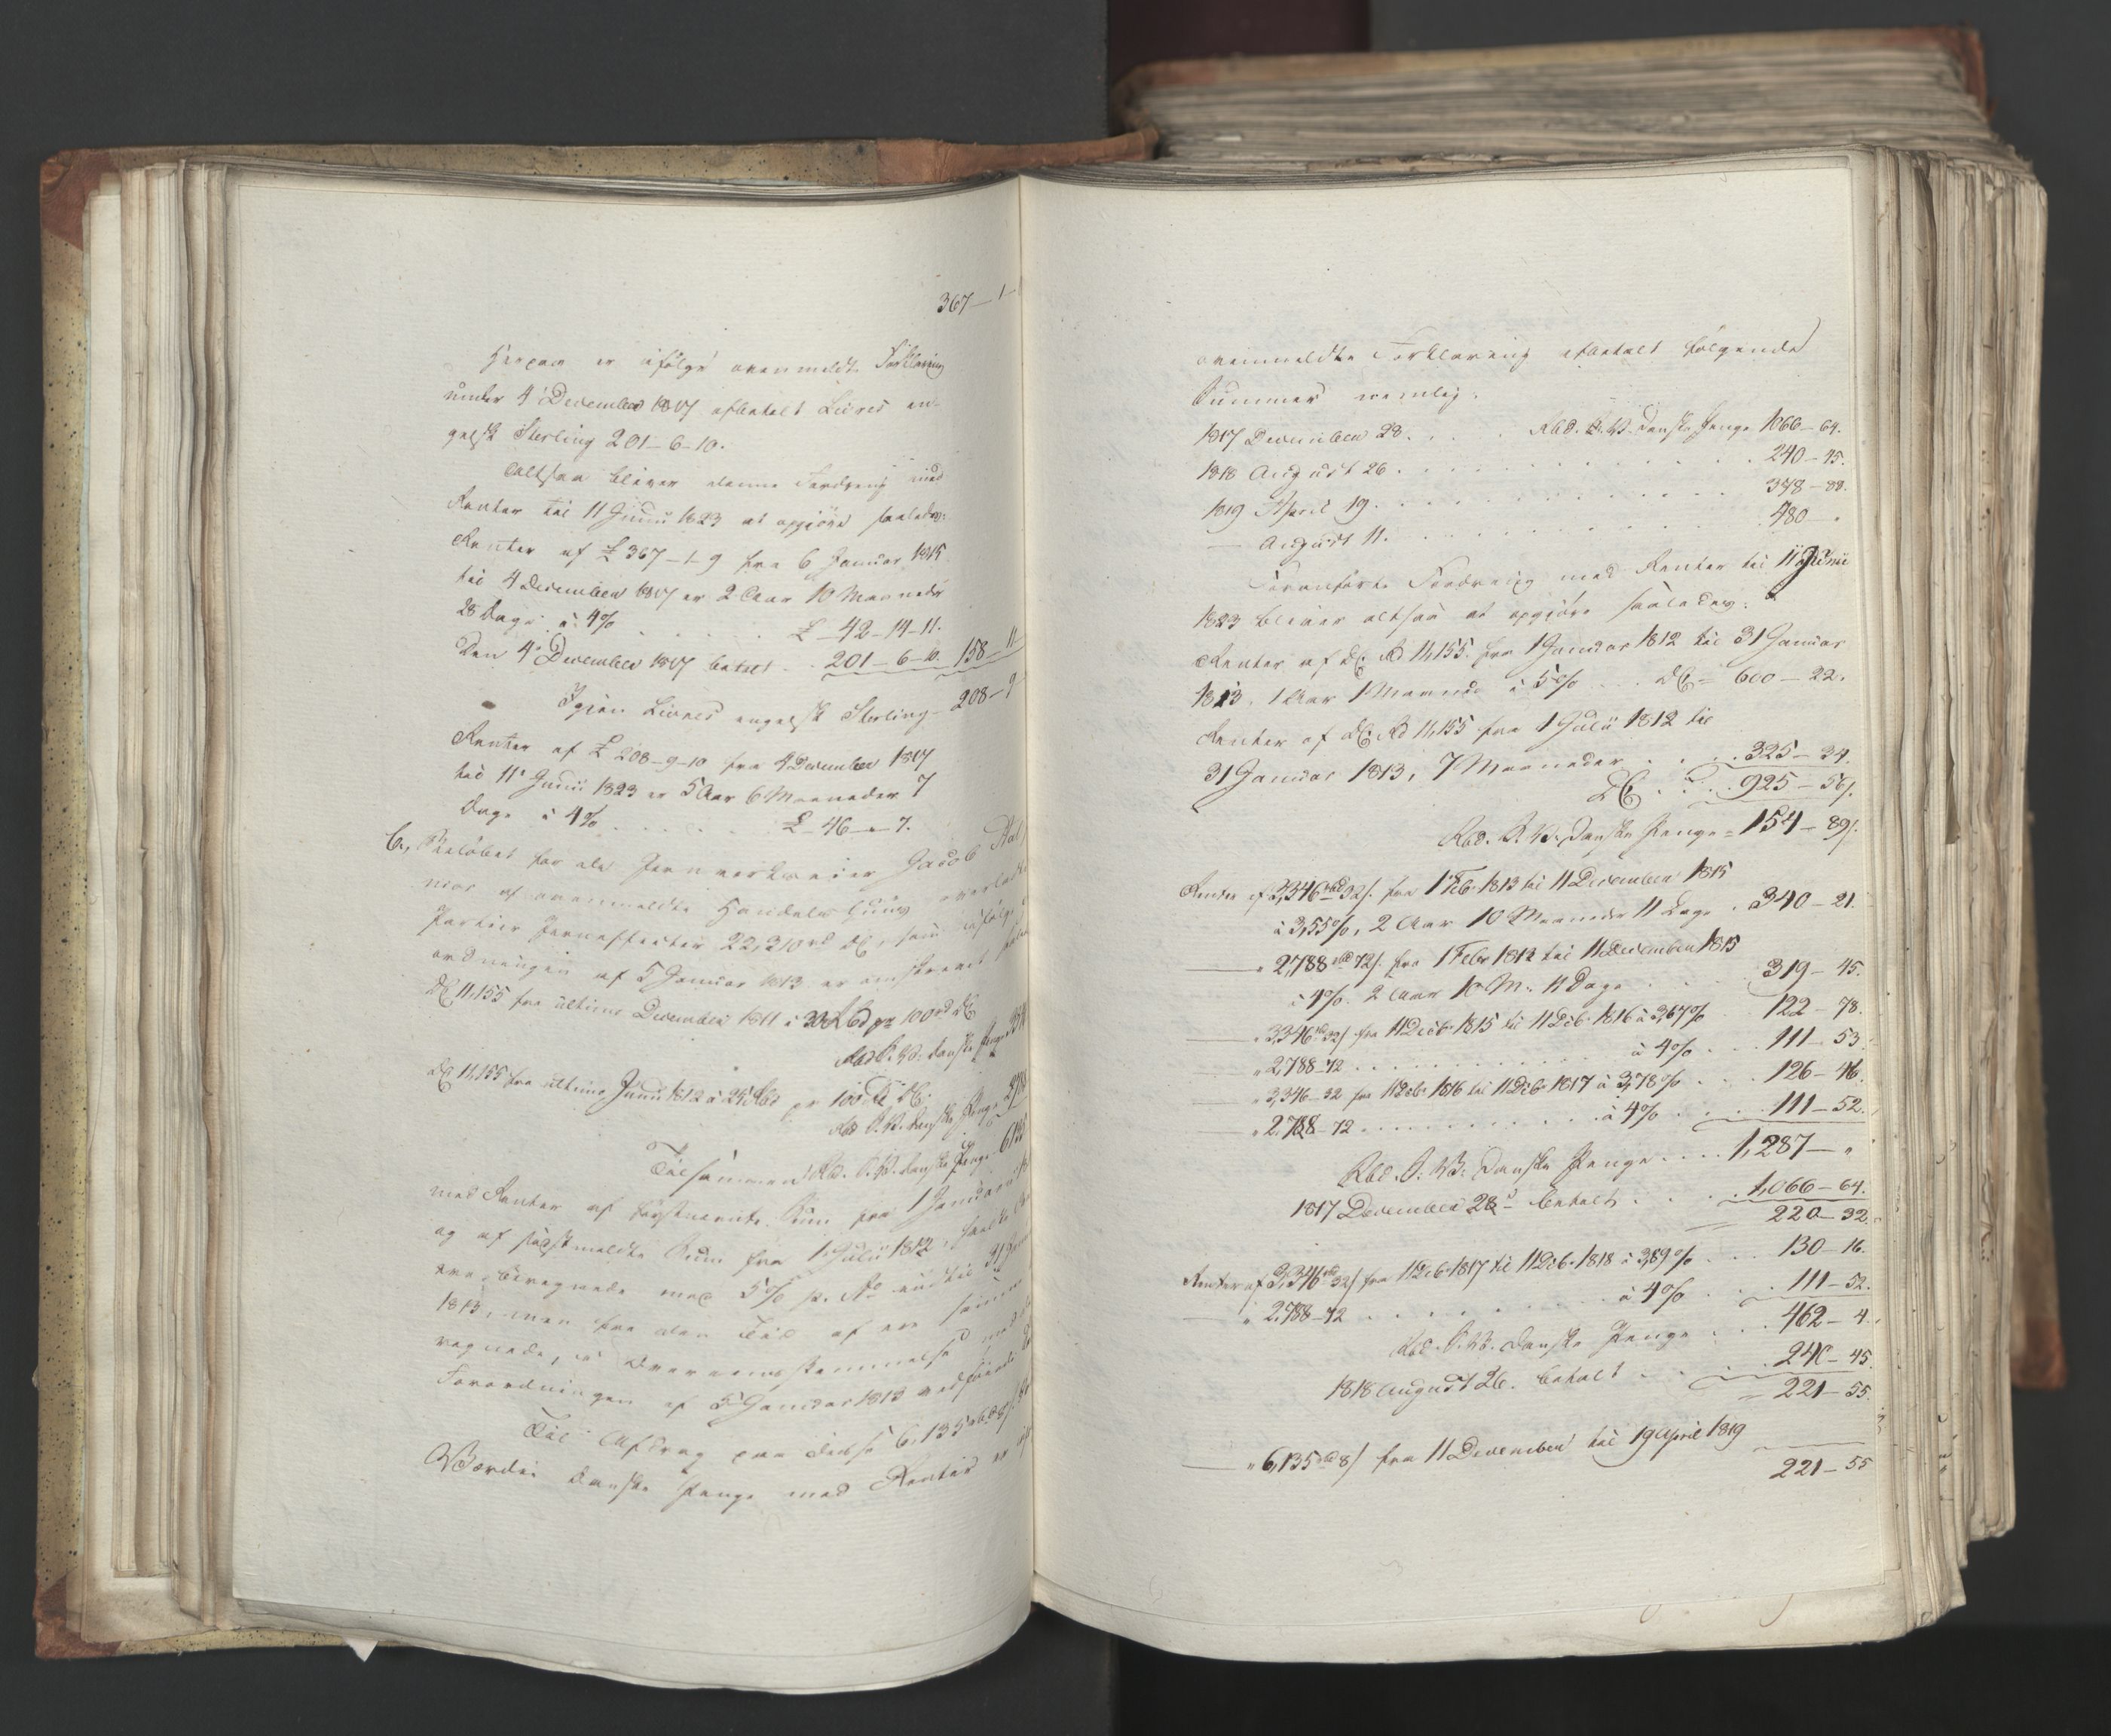 367 – 1 –
Herpaa er ifølge ovenmeldte Forklaring
under 4 December 1817 afbetalt Livres en-
gelsk Sterling 201–6–10.
Altsaa bliver denne Fordring med
Renter til 11 Junii 1823 at opgjøre saaledes:
Renter af £ 367–1–9 fra 6 Januar 1815
til 4 December 1817 er 2 Aar 10 Maaneder
28 Dage à 4% . . . . . £ 42–14–11.
Den 4 December 1817 betalt . . 201–6–10. 158–11
Igjen Livres engelsk Sterling 208–9
Renter af £ 208–9–10 fra 4 December 1817
til 11 Junii 1823 er 5 Aar 6 Maaneder 7
Dage à 4% . . . . . £ 46–"–7.
C., Beløbet for de Jernverkseier Jacob Aal
af ovenmeldte Handels Huus
Partier Jerneffecter 22,310 rd DC, som ifølge
ordningen af 5 Januar 1813 er omskrevet
DC 11,155 fra ultimo December 1811 à 30 Rbd pr 100 rd DC
Rbd S.V. danske Penge 334
DC 11,155 fra ultimo Junii 1812 à 25 Rbd pr 100 Rd DC.
Rbd S.V. danske Penge 278
Tilsammen Rbd. S.V. danske Penge 6135
med Renter af førstnævnte Sum fra 1 Januar
og af sidstmeldte Sum fra 1 Julii 1812,
beregnede med 5% p. Ao indtil 31 Januar
1813, men fra den Tid af ere
regnede, i Overeensstemmelse med
Forordningen af 5 Januar 1813
Til Afdrag paa disse 6,135 rbd 8 s.
Værdie danske Penge med Renter er
ovenmeldte Forklaring afbetalt følgende
Summer nemlig:
1817 December 28. . . . Rbd. S.V. danske Penge 1066–64.
1818 August 26 . . . . . . . . . . 240–45.
1819 April 19. . . . . . . . . . . 378–88.
— August 11. . . . . . . . . . 480–"
Foranførte Fordring med Renter til 11 Junii
1823 bliver altsaa at opgjøre saaledes:
Renter af DC. Rd 11,155. fra 1 Januar 1812 til 31 Januar
1813, 1 Aar 1 Maaned à 5% . . . DC = 600–22.
Renter af DC. Rd 11,155 fra 1 Julii 1812 til
31 Januar 1813, 7 Maaneder . . . . 325–34.
DC . . . 925–56 s.
Rbd. S.V. Danske Penge = 154–89 s.
Renter af 3,346 rbd 32 s. fra 1 Feb. 1813 til 11 December 1815
à 3,55%, 2 Aar 10 Maaneder 11 Dage . 340–21.
— " 2,788 rbd 72 s. fra 1 Febr 1813 til 11 December 1815
à 4%. 2 Aar 10 M. 11 Dage . . . 319–45.
— " 3,346 rd 32 s fra 11 Decb. 1815 til 11 Decb. 1816 à 3,67% . 122–78.
— " 2,788–72 . . . . . . . . . à 4% . . . 111–53
— " 3,346–32 fra 11 Decb. 1816 til 11 Decb. 1817 à 3,78% . . . 126–46.
— " 2,788–72 . . . . . . . . . à 4% . . . 111–52.
Rbd. S.V. Danske Penge . . . . 1,287–"
1817 December 28 betalt . . . . 1,066–64.
220–32.
Renter af 3,346 rbd 32 s fra 11 Decb. 1817 til 11 Decb. 1818 à 3,89% . . . 130–16.
— " 2,788–72 . . . . . . . . . à 4% . . . 111–52.
Rbd. S.V. Danske Penge . . . 462–4.
1818 August 26. betalt . . . 240–45.
221–55.
— " 6,135 rbd 8 s fra 11 December til 19 April 1819
221–55